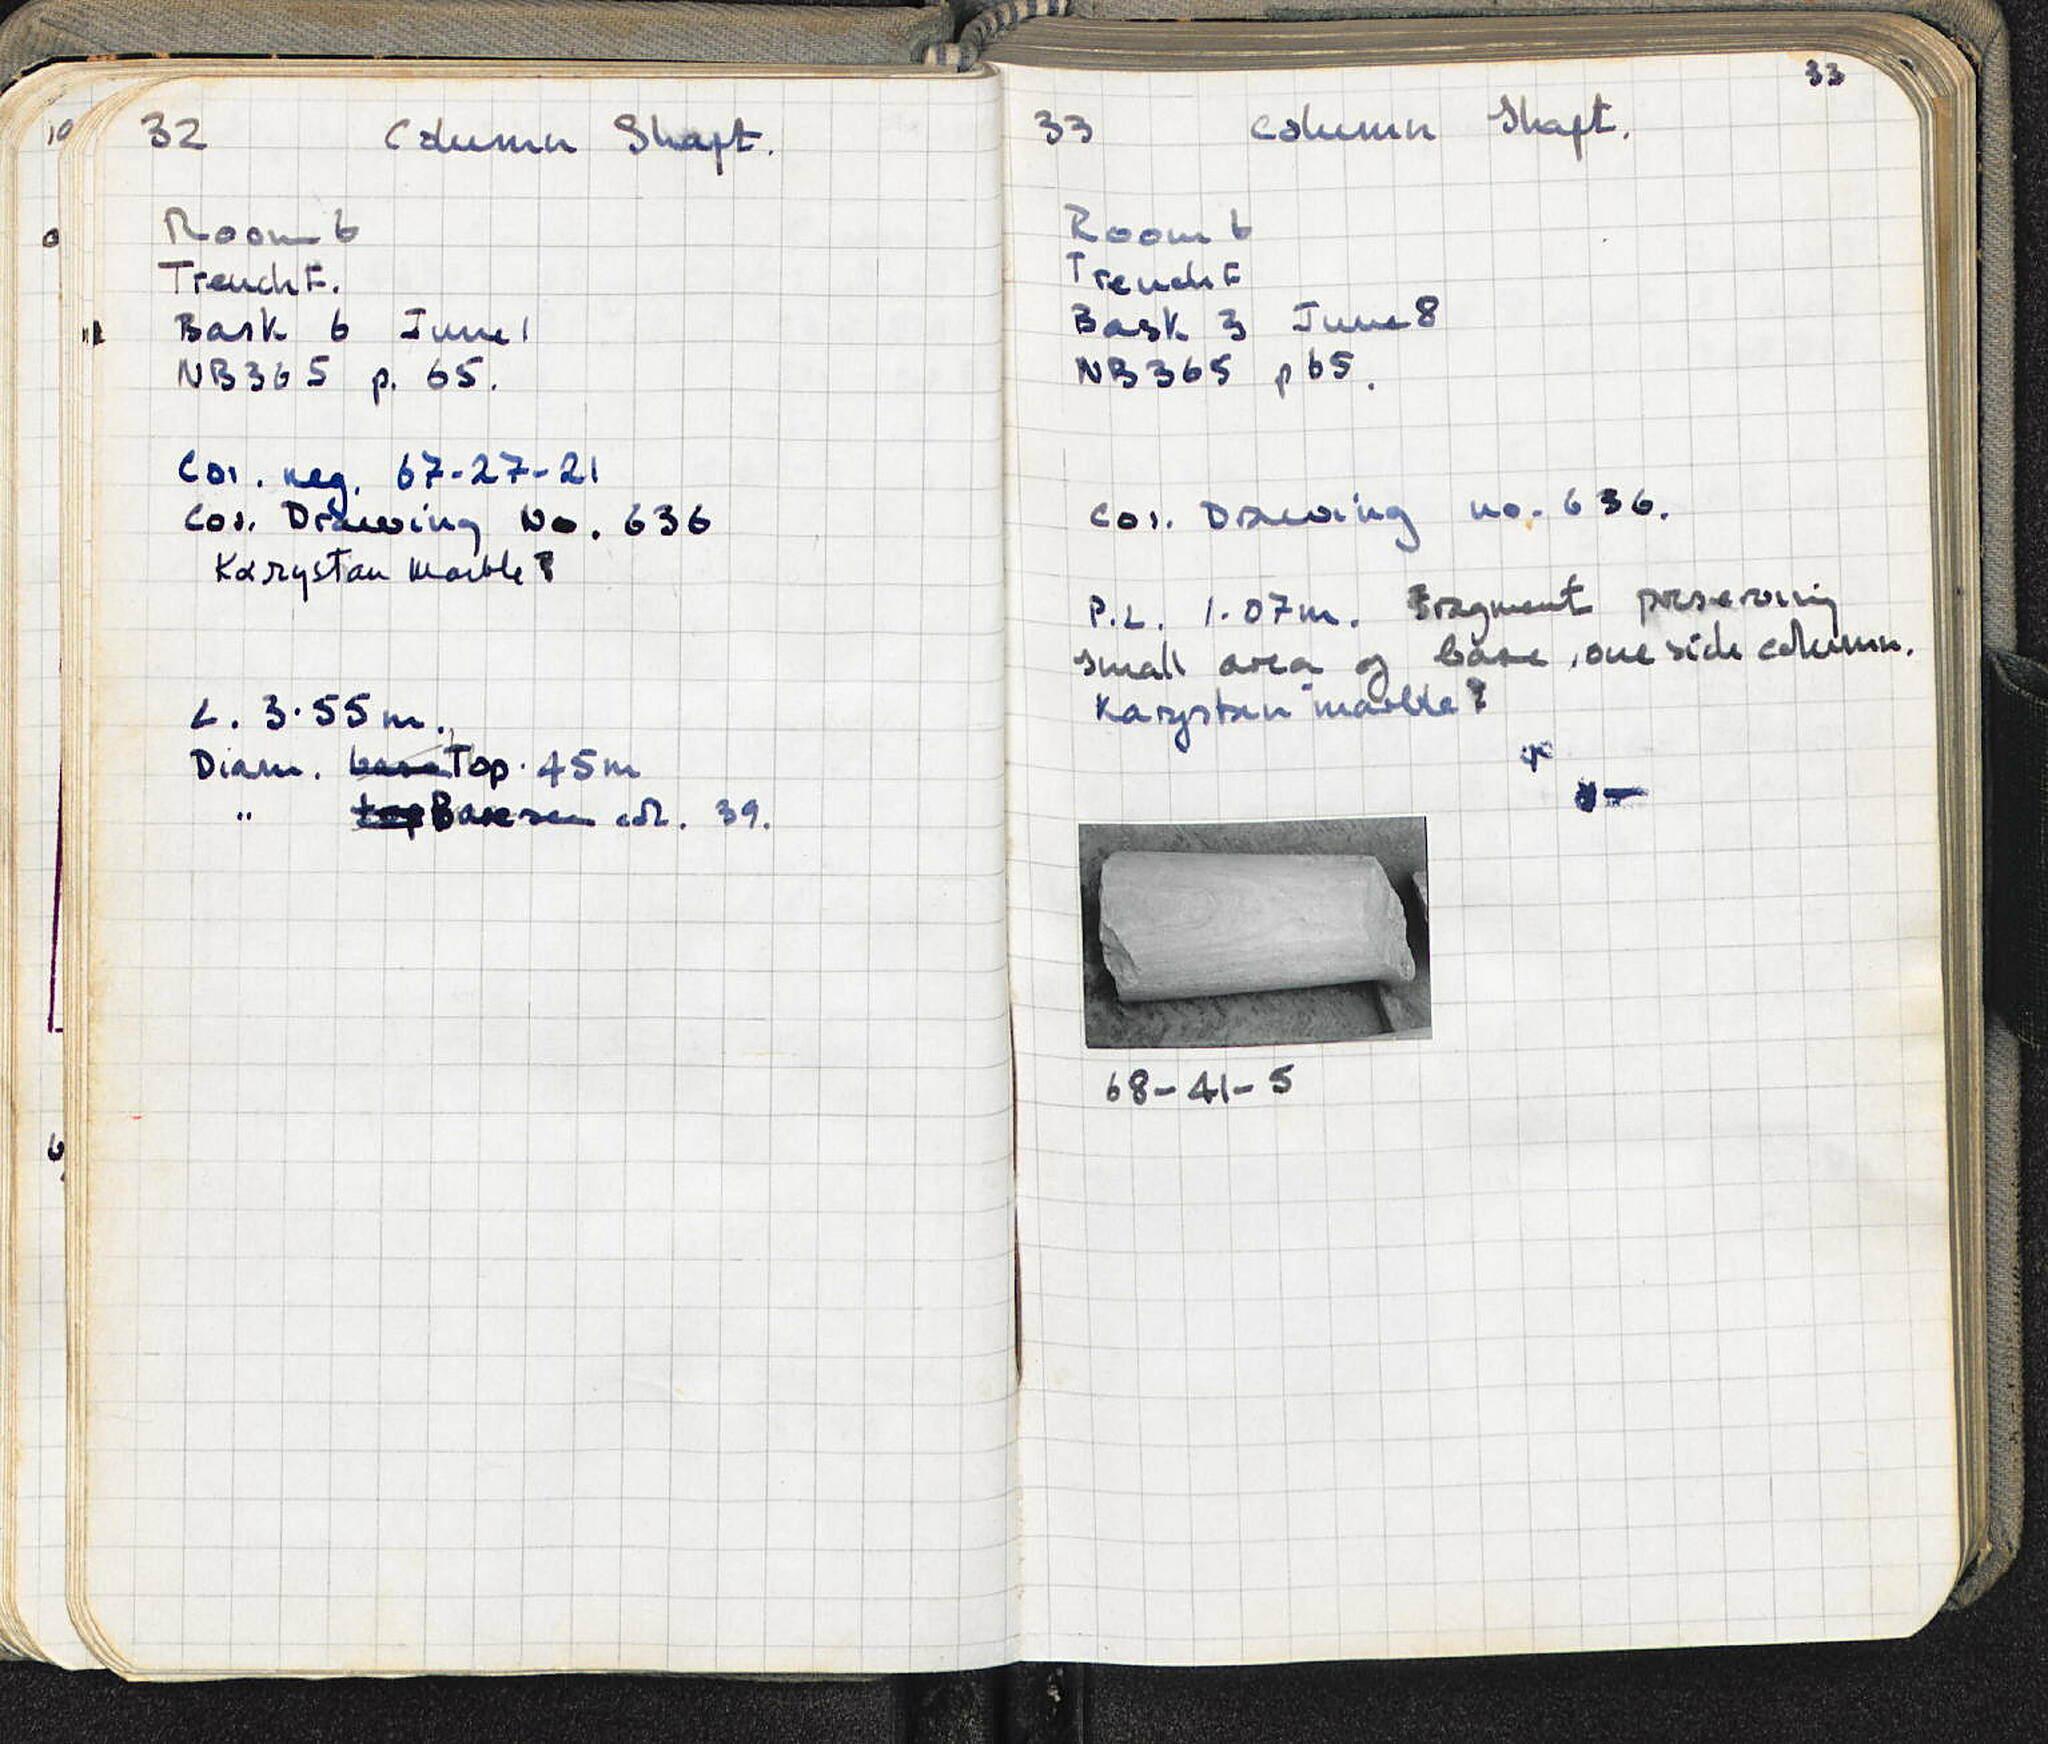 32 Column Shaft.
Room 6
Trench E.
Bask 6 June 1
NB365 p. 65.
Cor. neg. 67-27-21
Cor. Drawing No. 636
Karystan Marble?
L. 3.55m.
Diam. base Top .45m
" top Base see col. 39.
33
33 Column Shaft.
Room 6
Trench E
Bask 3 June 8
NB365 p65.
Cor. Drawing no. 636.
P.L. 1.07m. Fragment preserving
small area of base, one side column.
Karystan marble?
68-41-5